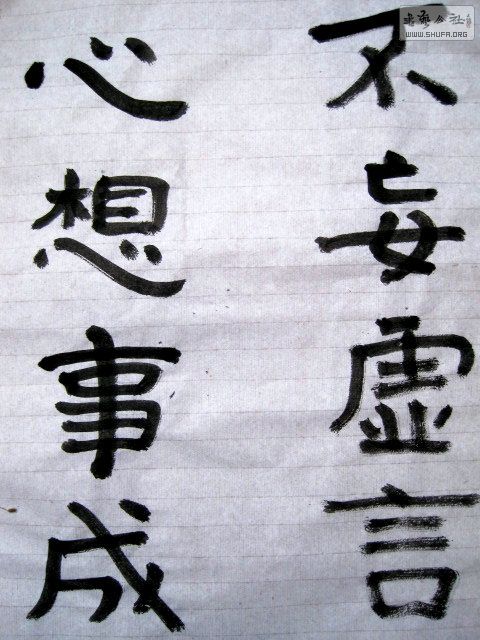 不妄虚言
心想事成
书艺公社
WWW.SHUFA.ORG